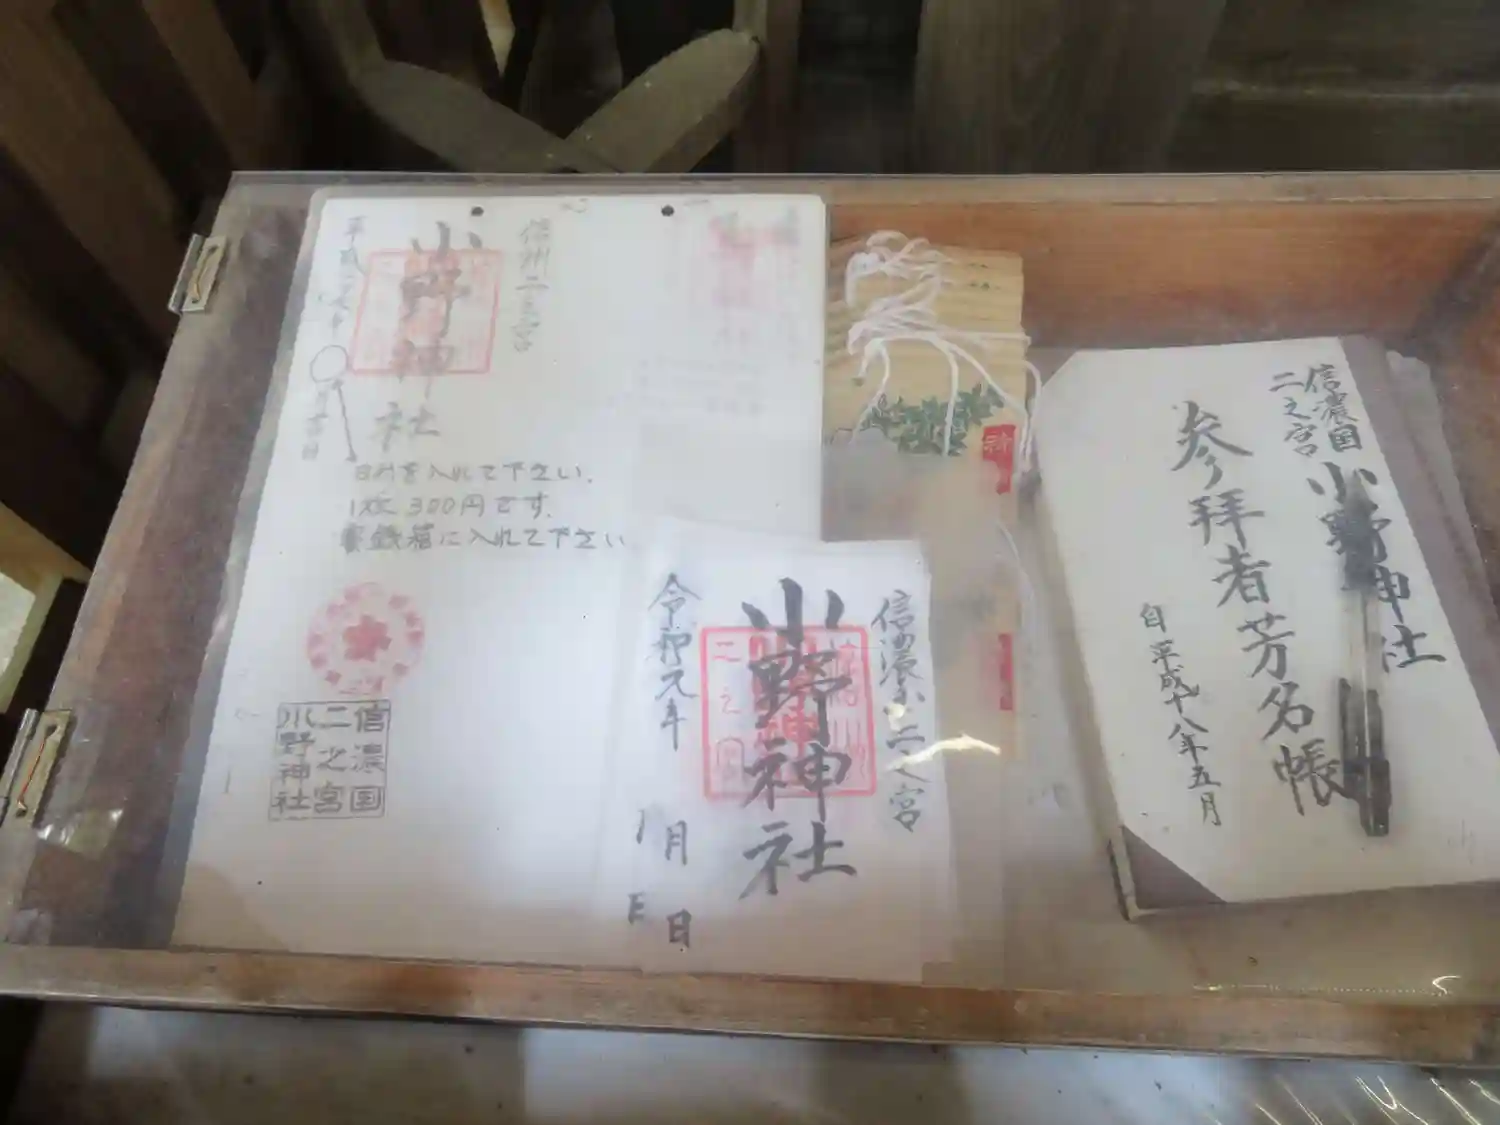 信州二之宮
小野神社
日付を入れて下さい.
1枚 300円です.
賽銭箱に入れて下さい
信濃国
二之宮
小野神社
信濃国二之宮
小野神社
令和元年
月
日
信濃国
二之宮
小野神社
参拝者芳名帳
自平成十八年五月